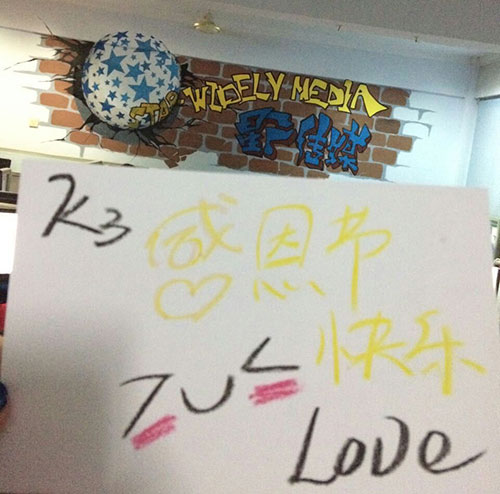 STAR WIDELY MEDIA
星广传媒
K3
感恩节
快乐
Love